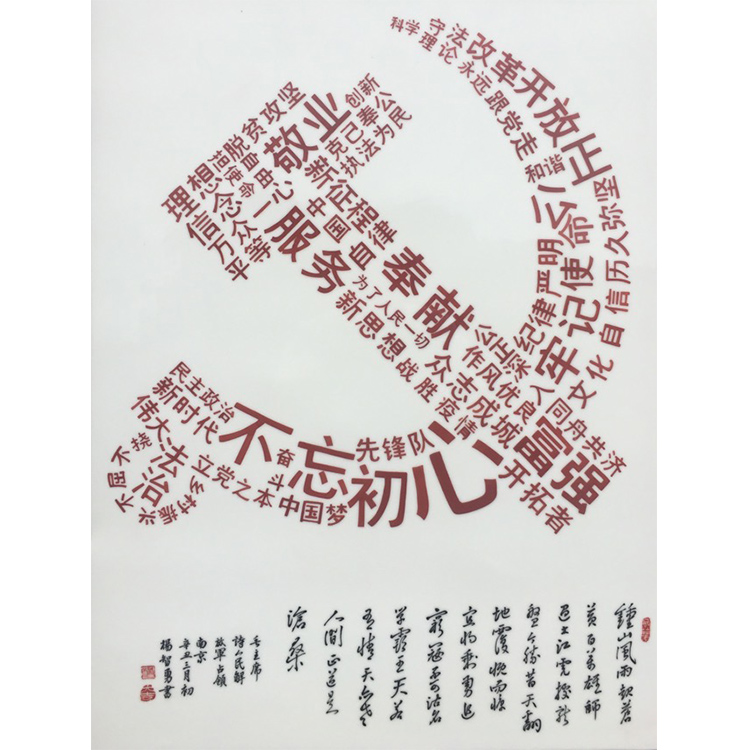 科学理论
守法
改革开放
永远跟党走
公正
和谐
创新
克己奉公
执法为民
敬业
脱贫攻坚
理想
信念
万众一心
平等
服务
新征程
中国
自律
为了人民一切
新思想
奉献
严明纪律
牢记使命
历久弥坚
文化自信
作风优良
众志成城
战胜疫情
同舟共济
富强
开拓者
先锋队
不忘初心
奋斗
中国梦
立党之本
民主政治
新时代
伟大
法治
不屈不挠
乡村振兴
鍾山風雨起蒼
黄百万雄師
过大江虎踞龍
盤今勝昔天翻
地覆慨而慷
宜将剩勇追
窮寇不可沽名
學霸王天若
有情天亦老
人间正道是
滄桑
毛主席
诗人民解
放軍占領
南京
辛丑三月初
楊智勇書